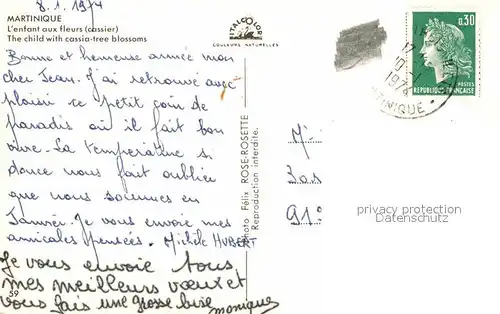 8.1.1974
MARTINIQUE
L'enfant aux fleurs (cassier)
The child with cassia-tree blossoms
Bonne et heureuse année mon
cher Jean. J'ai retrouvé avec
plaisir ce petit coin de
paradis où il fait bon
vivre. La température si
douce nous fait oublier
que nous sommes en
Janvier. Je vous envoie mes
amicales pensées. Michèle HUBERT
Je vous envoie tous
mes meilleurs vœux et
vous fais une grosse bise
monique
59
ITALCOLOR
COULEURS NATURELLES
Photo Félix ROSE-ROSETTE
Reproduction interdite.
0,30
POSTES
REPUBLIQUE FRANÇAISE
17
10-1
1974
TINIQUE
privacy protection
Datenschutz